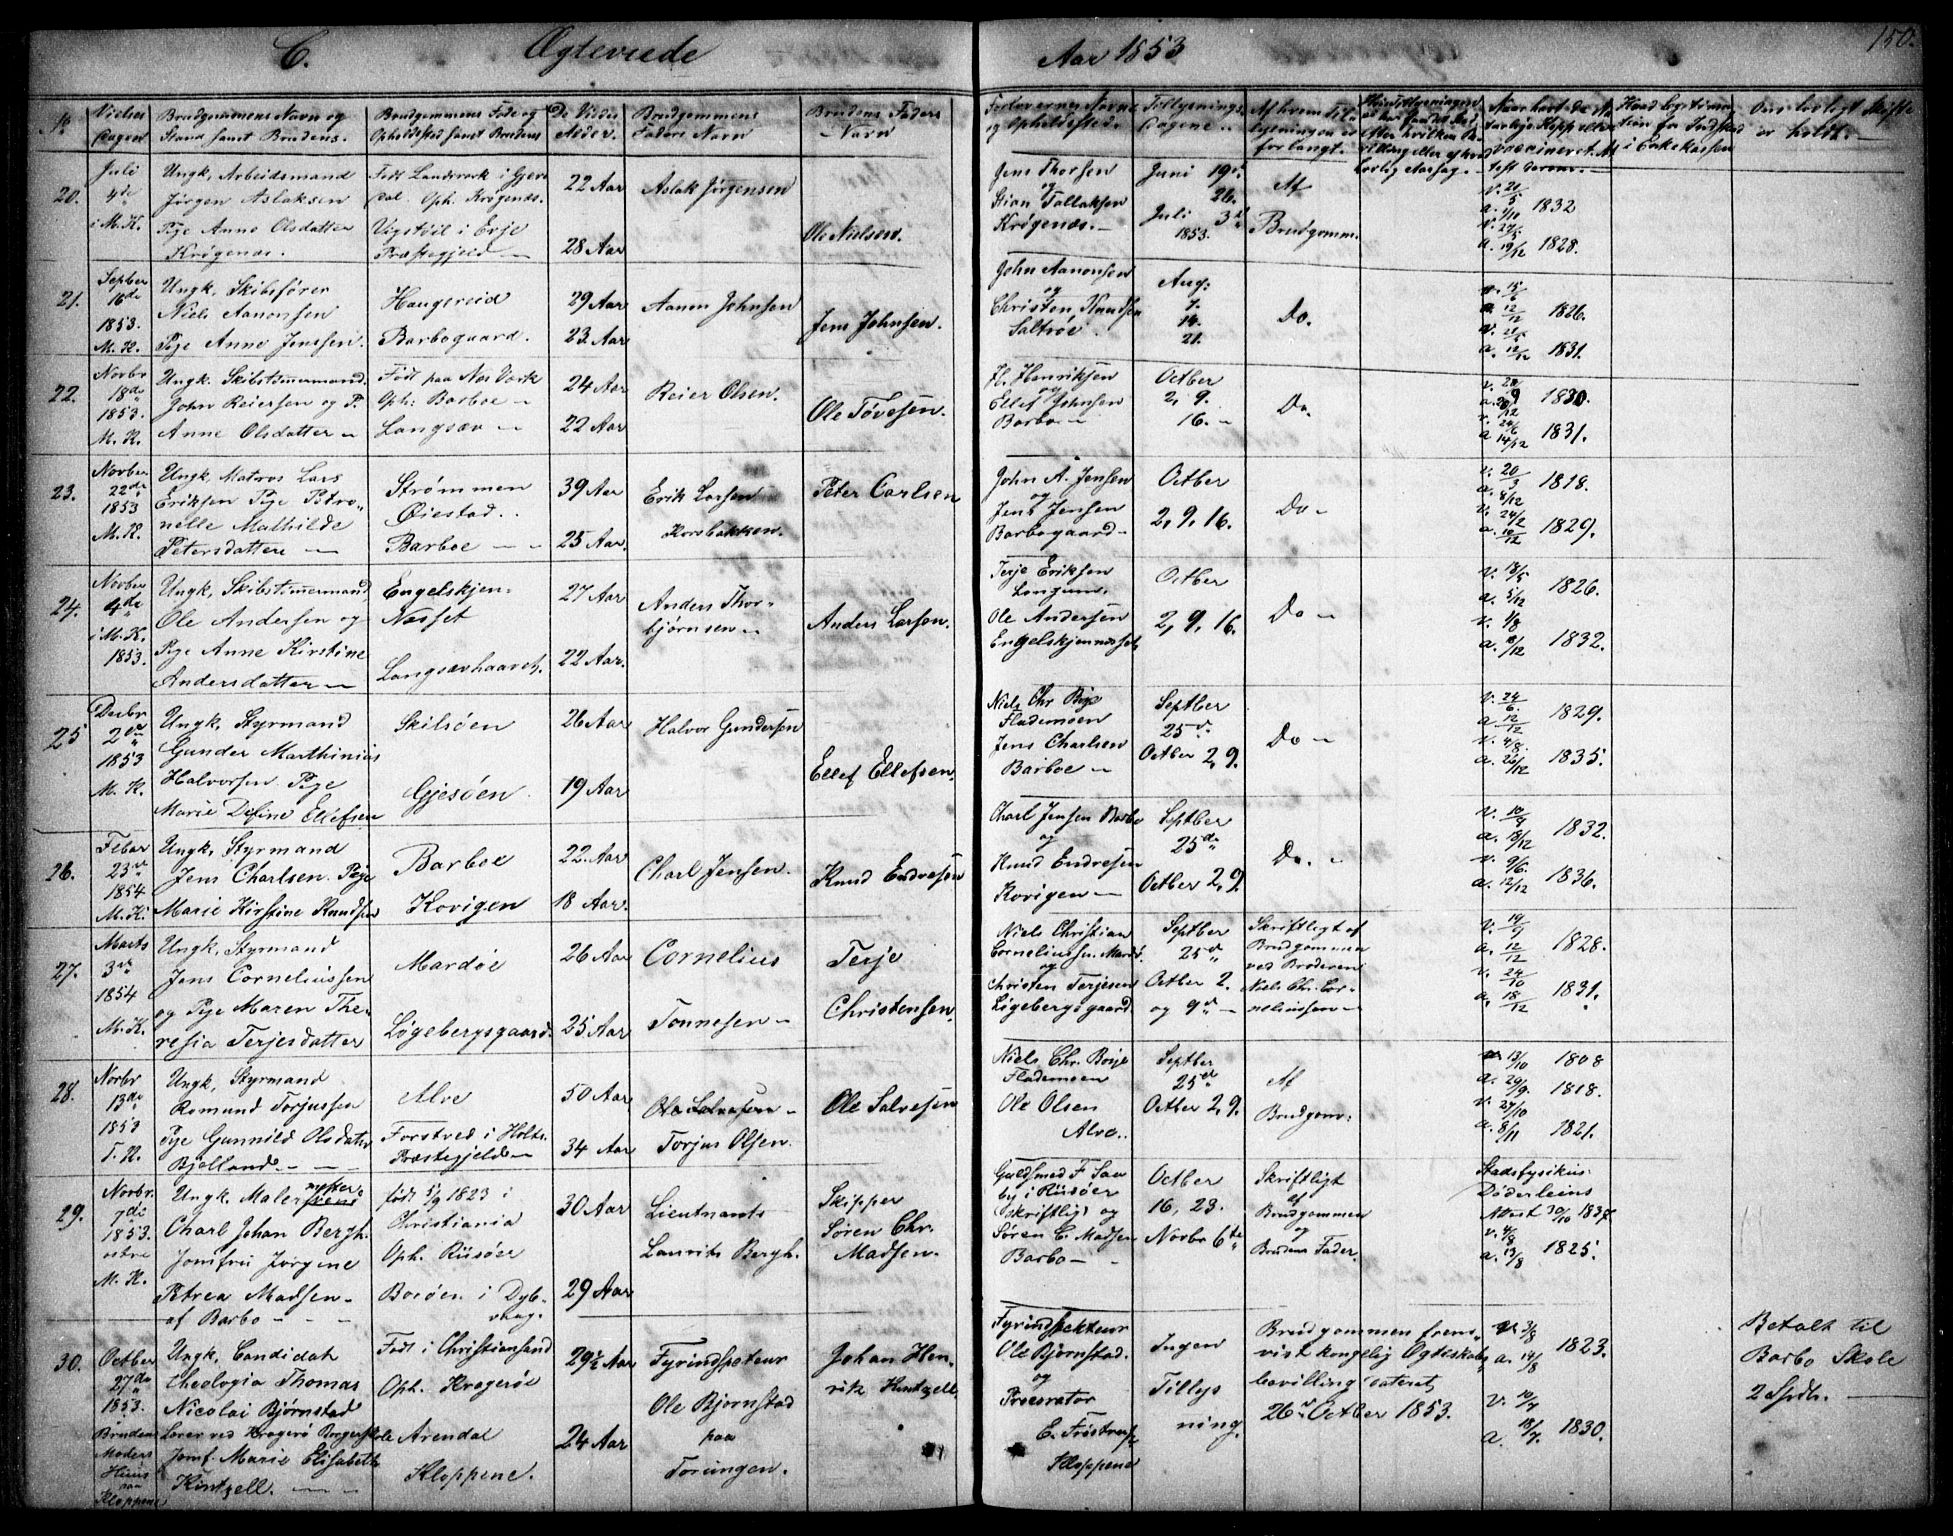 C. Ægteviede Aar 1853 150.
No
Vielses Dagen
Brudgommens Navn og Stand samt Brudens.
Brudgommens Føde og Opholdsted samt Brudens
De Viedes Alder.
Brudgommens Faders Navn
Brudens Faders Navn
Forlovernes Navne og Opholdsted.
Tillysnings Dagene
Af hvem Tillysningen er forlangt.
Naar havt de Naturlige Kopper eller vaccineret. Attest derom.
Om lovligt Skifte er holdt.
20.
Juli 4de i M.K.
Ungk. Arbeidsmand
Jörgen Aslaksen
Pige Anne Olsdatter
Krögenæs.
Født Landsverk i Gjer
dal. Oph. Krögenæs.
Vigstöil i Evje
Præstegjeld
22 Aar
28 Aar
Aslak Jörgensen
Ole Nielsen.
Jens Thorsen
og
Stian Tallaksen
Krögenæs.
Juni 19de
26.
Juli 3de
1853.
Af
Brudgomm.
a. 1832
a. 19/12 1828.
21.
Septber
16de
1853.
M.K.
Ungk. Skibsfører
Niels Aanonsen
Pige Anne Jenssen
Haugereid
Barbogaard.
29 Aar
23 Aar
Aanon Johnsen
Jens Johnsen.
John Aanonsen
og
Christen Knudsen
Saltröe.
Aug:
7.
14.
21.
Do.
v. 15/6
a. 12/12 1826.
a. 12/12 1831.
22.
Novbr
18de
1853.
M.K.
Ungk. Skibstømmermand.
John Reiersen og P.
Anne Olsdatter
Født paa Næs Værk
Oph: Barboe
Langsæv
24 Aar
22 Aar
Reier Olsen.
Ole Tovesen.
H. Henriksen
og
Ellef Johnsen
Barbo
Octber
2, 9.
16.
Do.
1830.
a 14/12 1831.
23.
Novber
22de
1853
M.K.
Ungk. Matros Lars
Eriksen Pige Petro-
nelle Mathilde
Petersdatter
Strömmen
Öiestad.
Barboe
39 Aar
25 Aar.
Erik Larsen
Korsbakken.
Peter Carlsen
John A. Jensen
og
Jens Jensen
Barbogaard
Octber
2, 9, 16.
Do
v. 20/3
a. 8/12 1818.
v. 24/2
a. 1829.
24.
Novber
4de
i M.K.
1853.
Ungk. Skibstømmermand
Ole Andersen og
Pige Anne Kirstine
Andersdatter
Engelskjen-
Næsset
Langsævhaavet.
27 Aar
22 Aar.
Anders Thor-
bjørnsen
Anders Larsen.
Terje Eriksen
Longum.
Ole Andersen
Engelskjennæsset
Octber
2, 9, 16.
Do
v. 18/5
a. 5/12 1826.
v. 4/8
a. 1832.
25
Decbr
2den
1853
M.K.
Ungk. Styrmand
Gunder Marthinius
Halvorsen Pige
Marie Define Ellefsen
Skilsöen
Gjesöen
26 Aar
19 Aar
Halvor Gundersen
Ellef Ellefsen.
Niels Chr Boje
Flademoen
Jens Charlsen
Barboe
Septber
25de
Octber 2, 9.
Do
v. 24/6
a. 12/12 1829.
v. 4/8.
a. 26/12 1835.
26.
Febar
23de
1854
M.K.
Ungk. Styrmand
Jens Charlsen. Pige
Marie Kirstine Knudsen
Barboe
Kovigen
22. Aar
18 Aar.
Charl Jensen.
Knud Endresen
Charl Jensen Barbo
og
Knud Endresen
Kovigen
Septber
25de
Octber 2, 9
Do.
a. 18/12 1832.
v. 9/6.
a. 12/12 1836.
27.
Marts
3de
1854
M.K.
Ungk. Styrmand
Jens Corneliussen
og Pige Maren The-
resia Terjesdatter
Mardöe
Løgebergsgaard.
26 Aar
25 Aar
Cornelius
Tönnesen
Terje
Christensen.
Niels Christian
Corneliussen. Mardö.
og
Christen Terjesen
Løgebergsgaard
Septber
25de
Octber 2.
og 9de
Skriftligt af
Brudgommen
ved Broderen
Niels Chr. Cor-
neliussen
v. 19/9
a. 12/12 1828.
v. 24/10
a. 18/12 1831.
28.
Novbr
13de
1853
T.K.
Ungk. Styrmand
Romund Torjussen
Pige Gunnild Olsdatter
Bjelland.
Alve
Forstved i Holts
Præstegjeld
50 Aar
34 Aar
Ole Salvesen
Torjus Olsen.
Ole Salvesen
Niels Chr. Boje
Flademoen
Ole Olsen
Alve.
Septber
25de
Octber 2, 9.
Af
Brudgom:
13/10 1808
a. 29/9. 1818.
v. 27/10
a. 8/11 1821.
29.
Novbr.
7de
1853.
M.K.
Ungk. Malermester
Charl Johan Bergh.
Jomfru Jørgine
Petrea Madsen
af Barbo
født 5/9 1823 i
Christiania
Oph. Riisöer
Boröen i Dyb-
vaag.
30 Aar
29 Aar
Lieutnants
Laurits Bergh.
Skipper
Søren Chr.
Madsen.
Guldsmed F. Saa
by i Riisöer
(skriftlig) og
Søren C. Madsen
Barbo
Octber
16, 23.
Novbr 6te
Skriftligt
af
Brudgommen
og
Brudens Fader.
Stadsfysikus
Døderleins
Attest 30/10 1837
v. 4/8
a. 13/8 1825.
30.
Octber
27de
1853.
Brudens
Moders
Huus
paa
Kloppene
Ungk. Candidat
theologia Thomas
Nicolai Bjørnstad
Lærer ved Kragerö Borgerskole
Jomf. Marie Elisabeth
Kintzell.
Født i Christiansand
Oph. Kragerøe
Arendal
Kloppene.
29½ Aar
24 Aar
Fyrinspecteur
Ole Bjørnstad
paa
Torungen.
Johan Hen-
rik Kintzell.
Fyrindspekteur
Ole Bjørnstad.
og
Procurator
Kloppene
Ingen
Tillys
ning.
Brudgommen frem-
vist kongelig Ægteskabs
bevilling dateret
26de Octber 1853.
3/8
a. 14/8 1823.
v. 10/7
a. 18/7. 1830.
Betalt til
Barbo Skole
2 Spdl.